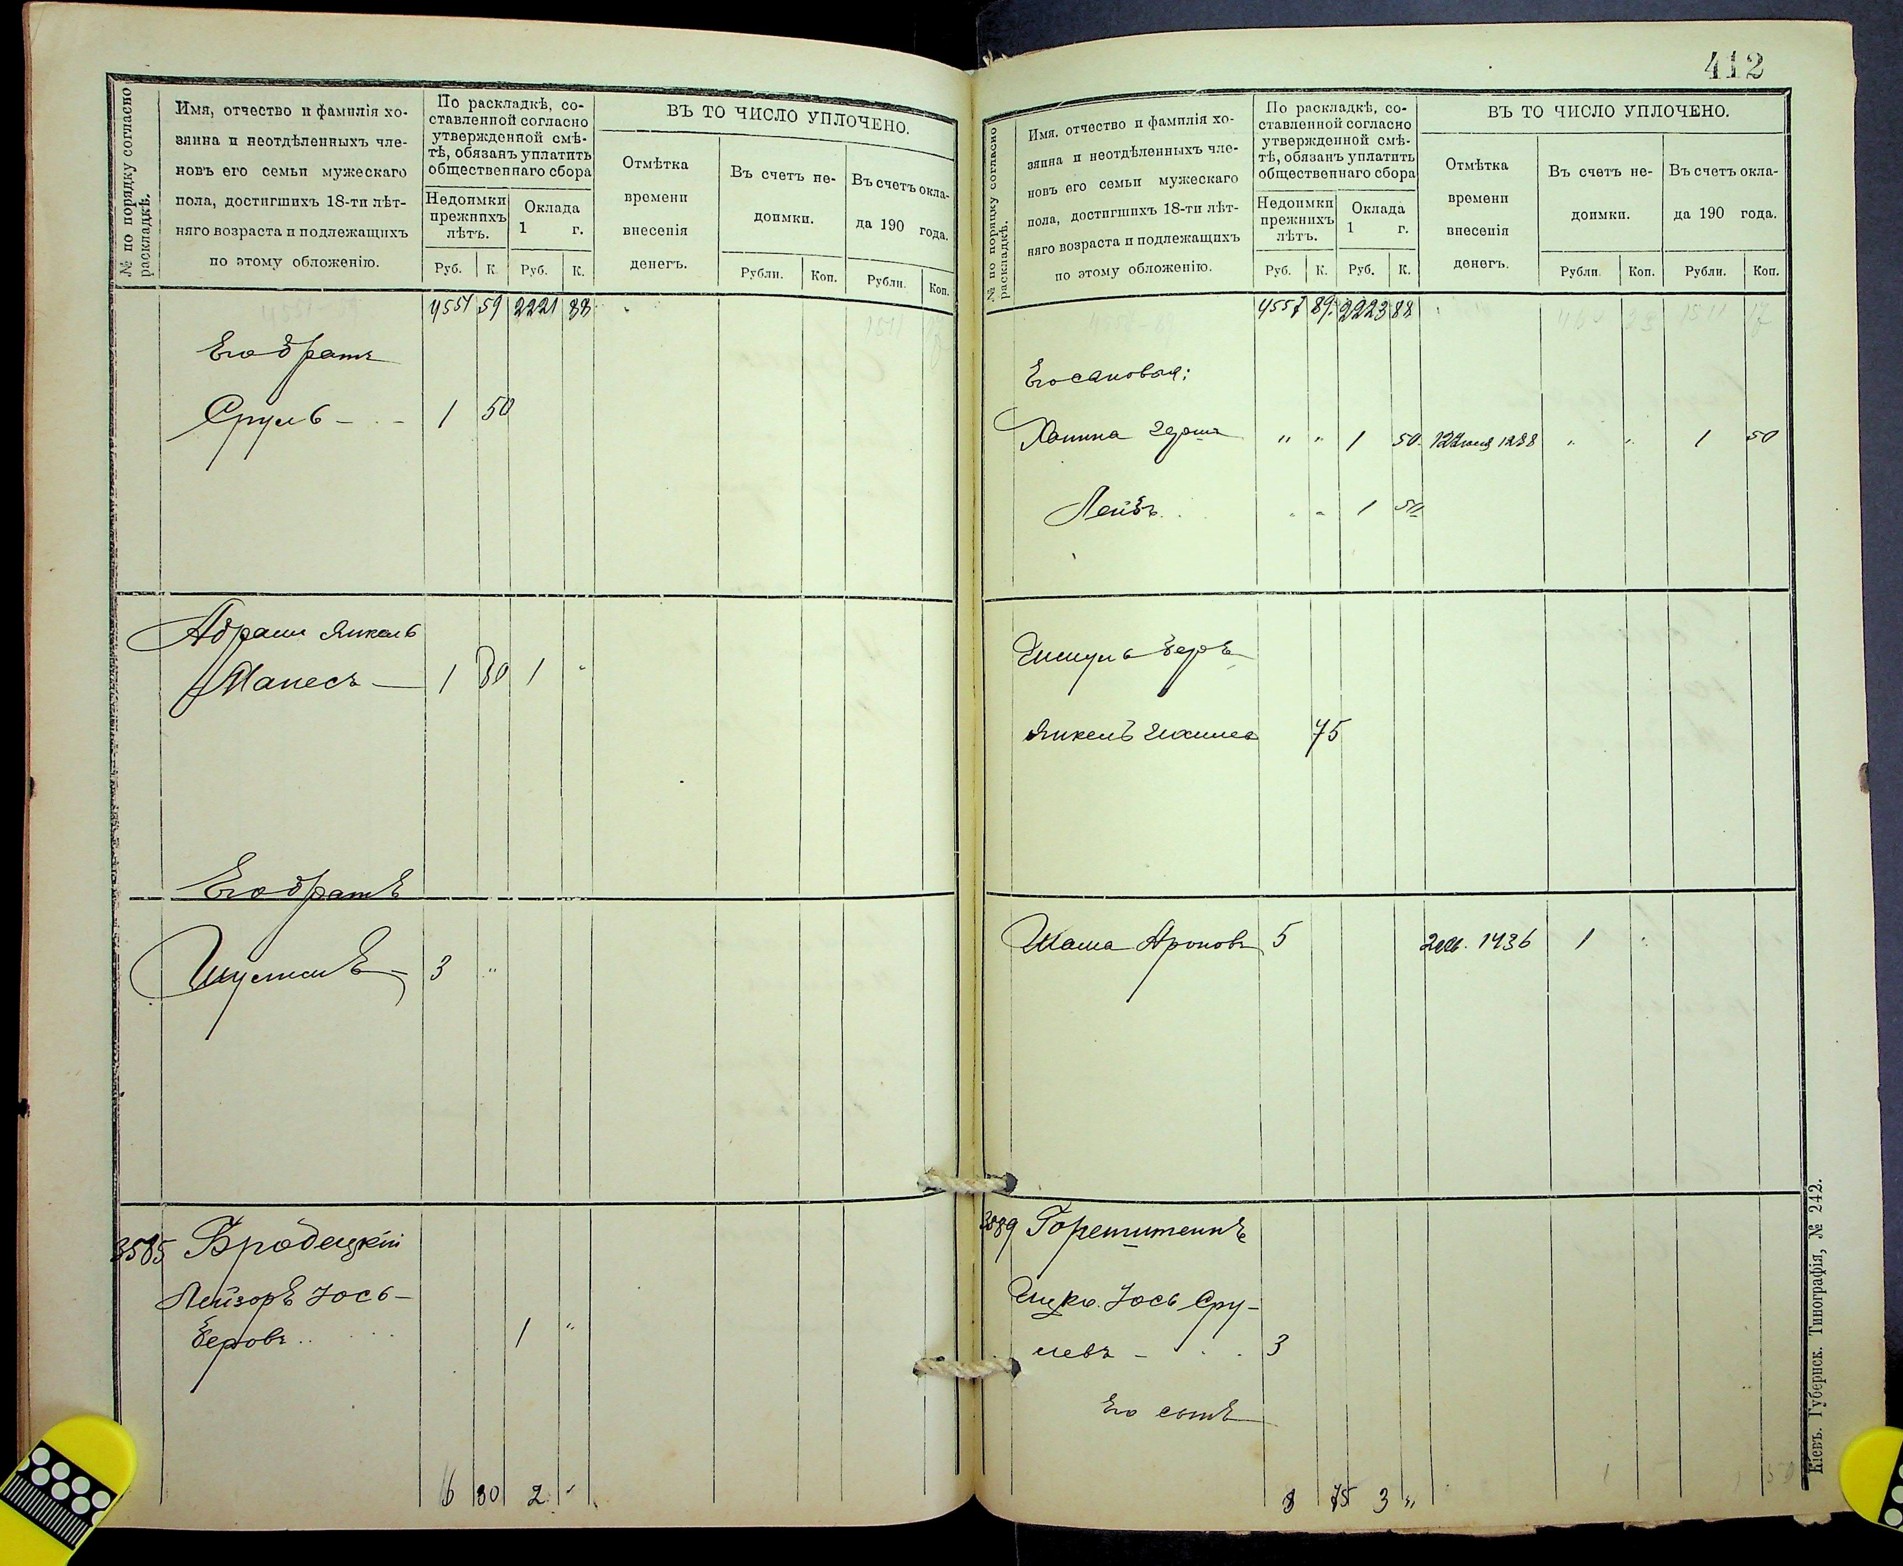 412
№ по порядку согласно раскладкѣ.
Имя, отчество и фамилія хо-
зяина и неотдѣленныхъ чле-
новъ его семьи мужескаго
пола, достигшихъ 18-ти лѣт-
няго возраста и подлежащихъ
по этому обложенію.
По раскладкѣ, со-
ставленной согласно
утвержденной смѣ-
тѣ, обязанъ уплатить
общественнаго сбора
Недоимки
прежнихъ
лѣтъ.
Оклада
1 г.
Руб. К. Руб. К.
ВЪ ТО ЧИСЛО УПЛОЧЕНО.
Отмѣтка
времени
внесенія
денегъ.
Въ счетъ не-
доимки.
Въ счетъ окла-
да 190 года.
Рубли. Коп. Рубли. Коп.
4551 59 2221 88
Его братъ
Сруль - - - 1 50
Абрамъ Янкель
Манесъ — 1 80 1 "
Его братъ
3 "
3585 Бродецкій
Лейзоръ Іось-
Беровъ .. 1 "
6 80 2 "
№ по порядку согласно раскладкѣ.
Имя, отчество и фамилія хо-
зяина и неотдѣленныхъ чле-
новъ его семьи мужескаго
пола, достигшихъ 18-ти лѣт-
няго возраста и подлежащихъ
по этому обложенію.
По раскладкѣ, со-
ставленной согласно
утвержденной смѣ-
тѣ, обязанъ уплатить
общественнаго сбора
Недоимки
прежнихъ
лѣтъ.
Оклада
1 г.
Руб. К. Руб. К.
ВЪ ТО ЧИСЛО УПЛОЧЕНО.
Отмѣтка
времени
внесенія
денегъ.
Въ счетъ не-
доимки.
Въ счетъ окла-
да 190 года.
Рубли. Коп. Рубли. Коп.
4557 89 2223 88
Его сыновья:
Ханина " " 1 50 1288 " " 1 50
Лейбъ " " 1 50
Беръ
Янкель 75
Шама Ароновъ 5 1436 1 "
3589
Ицко Іось Сру-
левъ - . . 3
Его сынъ
8 75 3 "
Кіевъ. Губернск. Типографія, № 242.